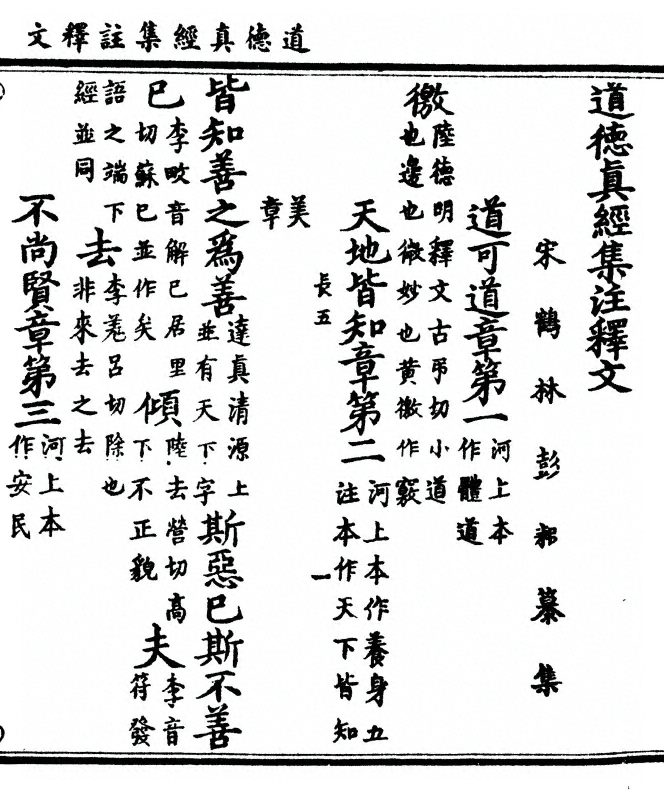 道德真經集註釋文
道德真經集注釋文
宋鶴林彭耜纂集
道可道章第一河上本
作體道
徼陸德明釋文古弔切小道
也邊也微妙也黄徼作竅
天地皆知章第二河上本作養身五
注本作天下皆知
長五
一
美
章
皆知善之爲善達真清源上
並有天下字斯惡巳斯不善
巳李畋音解巳居里
切蘇巳並作矣傾陸去營切高
下不正貌夫李音
符發
語之端下
經並同去李羌呂切除也
非來去之去
不尚賢章第三河上本
作安民